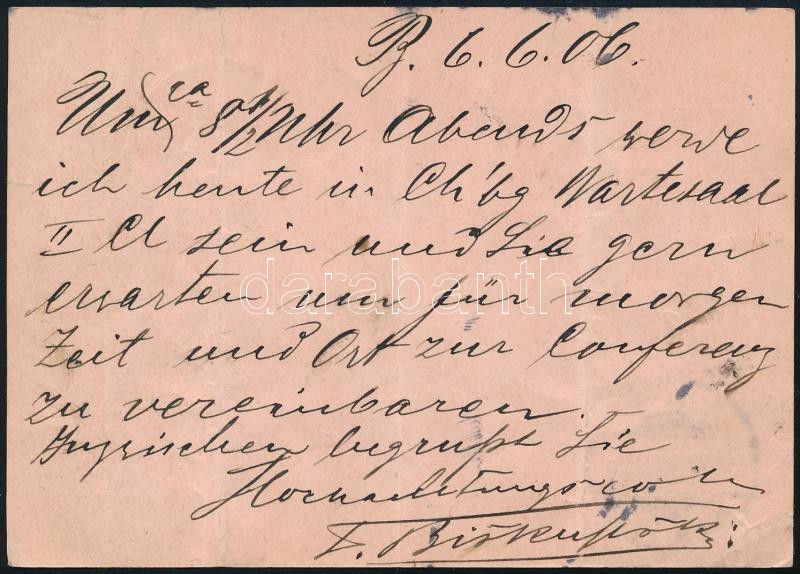 B. 6.6.06.
Um ca 8 1/2 Uhr Abends werde
ich heute in Ch'bg Wartesaal
II Cl sein und Sie gern
erwarten um für morgen
Zeit und Ort zur Conferenz
zu vereinbaren.
Inzwischen begrüßt Sie
Hochachtungsvoll
darabanth